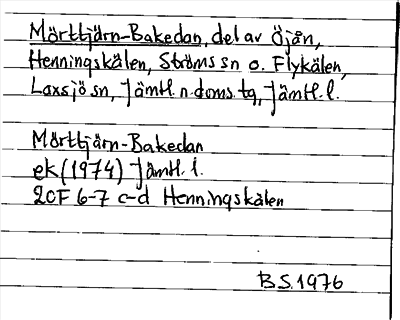 Mörttjärn-Bakedan, del av Öjån,
Henningskälen, Ströms sn o. Flykälen,
Laxsjö sn, Jämtl. n. doms. tg, Jämtl. l.
Mörttjärn-Bakedan
ek (1974) Jämtl. l.
20F 6-7 c-d Henningskälen
B S. 1976